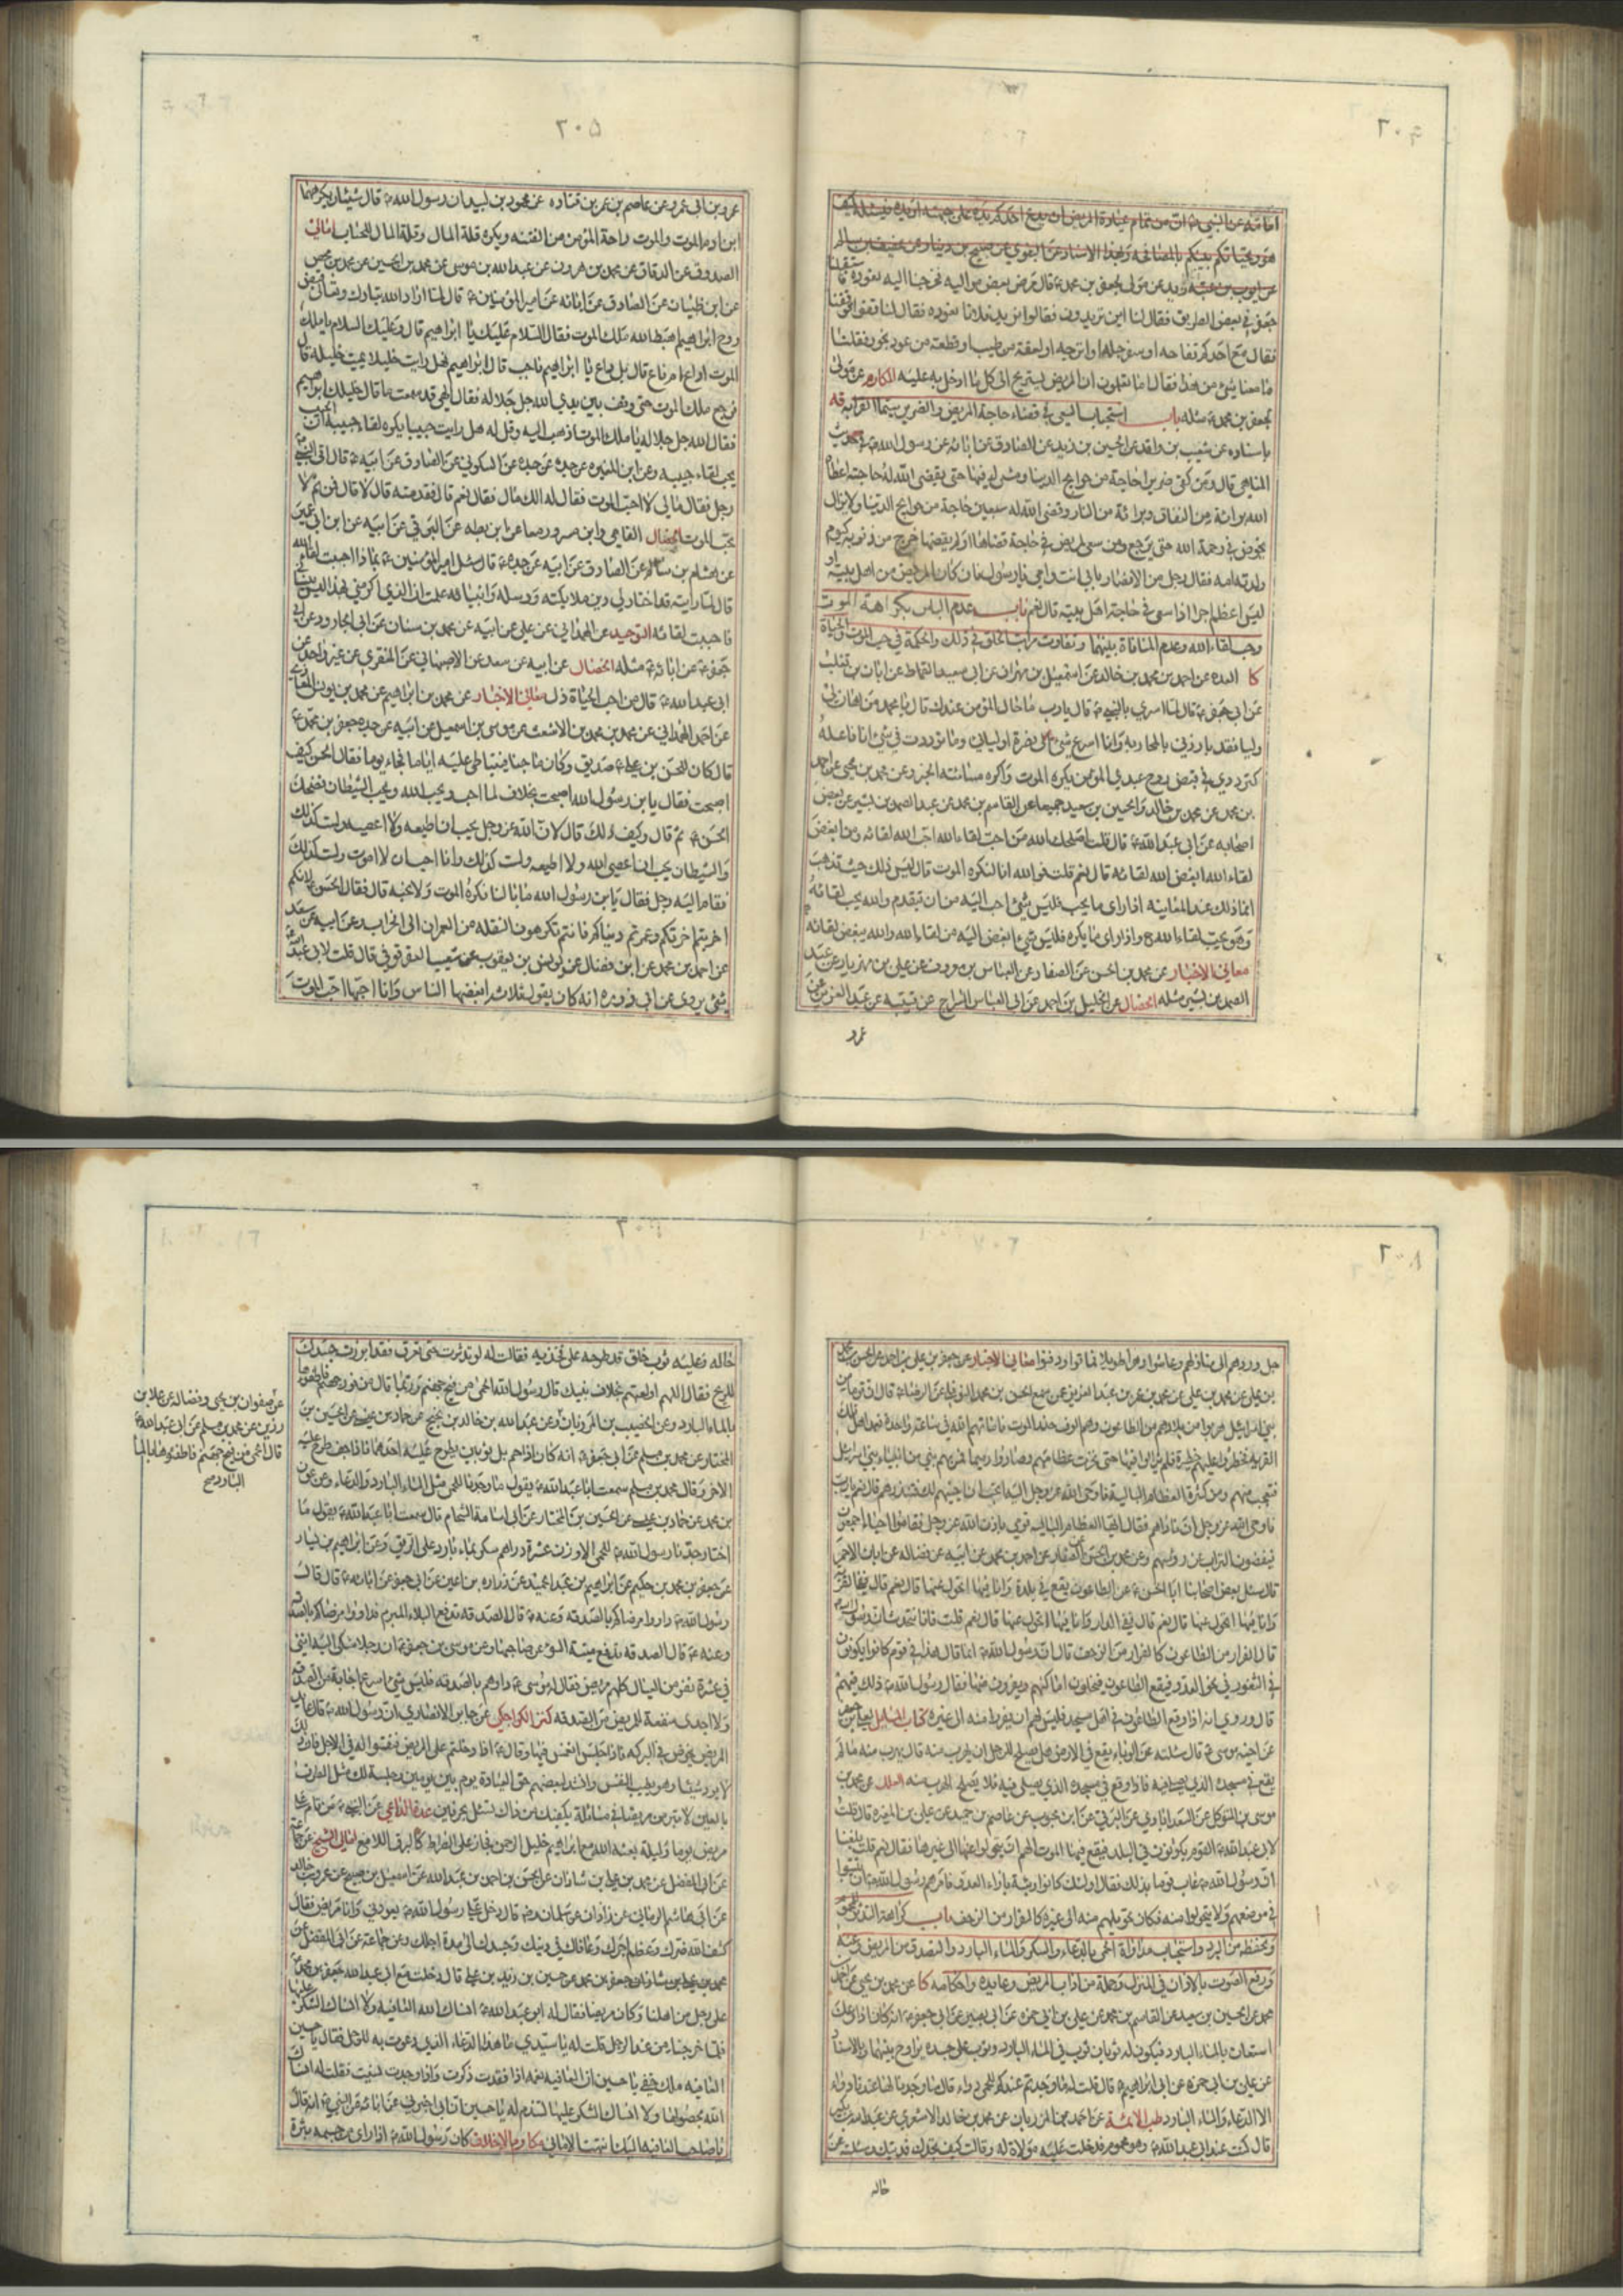 امامة عن النبي ص ان من تمام عيادة المريض ان يدع احدكم يده على جبهته او يده فيسئله كيف
هو وتحياتكم بينكم بالمصافحة وبهذا الاسناد عن البغوي عن صبيح بن دينار عن عفيف بن سالم
عن ايوب بن عتبة
جعفر في بعض الطريق فقال لنا اين تريدون فقالوا نريد فلانا نعوده فقال لنا قفوا فوقفنا
فقال مع احدكم تفاحه او سفرجله او اترجه او لعقة من طيب او قطعة من عود بخور فقلنا
ما معنا شيء من هذا فقال اما تعلمون ان المريض يستريح الى كل ما ادخل به عليه المكارم عن مولى
لجعفر بن محمد ع مثله باب استحباب السعي في قضاء حاجة المريض والضرير سيما القرابه يه
باسناده عن شعيب بن واقد عن الحسين بن زيد عن الصادق عن ابائه عن رسول الله ص في حديث
المناهي قال ومن كفى ضريرا حاجة من حوايج الدنيا ومشى له فيها حتى يقضي الله له حاجته اعطاه
الله براءة من النفاق وبراءة من النار وقضى الله له سبعين حاجة من حوايج الدنيا ولا يزال
يخوض في رحمة الله حتى يرجع ومن سعى لمريض في حاجة قضاها او لم يقضها خرج من ذنوبه كيوم
ولدته امه فقال رجل من الانصار بابي انت وامي يا رسول الله فان كان المريض من اهل بيته او
ليس اعظم اجرا اذا سعى في حاجة اهل بيته قال نعم باب عدم الباس بكراهة الموت
وحب لقاء الله وعدم المنافاة بينهما وتفاوت مراتب الخلق في ذلك والحكمة في حب الموت والحياة
كا العده عن احمد بن محمد بن خالد عن اسمعيل بن مهران عن ابي سعيد القماط عن ابان بن تغلب
عن ابي جعفر ع قال لما اسري بالنبي ص قال يا رب ما حال المؤمن عندك قال يا محمد من اهان لي
وليا فقد بارزني بالمحاربه وانا اسرع شيء الى نصرة اوليائي وما ترددت في شيء انا فاعله
كترددي في قبض روح عبدي المؤمن يكره الموت واكره مسائته الخبر وعن محمد بن يحيى عن احمد
بن محمد عن محمد بن خالد والحسين بن سعيد جميعا عن القاسم بن محمد عن عبد الصمد بن بشير عن بعض
اصحابه عن ابي عبد الله ع قال قلت اصلحك الله من احب لقاء الله احب الله لقائه ومن ابغض
لقاء الله ابغض الله لقائه قال نعم قلت فوالله انا لنكره الموت قال ليس ذلك حيث تذهب
انما ذلك عند المعاينة اذا راى ما يحب فليس شيء احب اليه من ان يتقدم والله يحب لقائه
وهو يحب لقاء الله ح واذا راى ما يكره فليس شيء ابغض اليه من لقاء الله والله يبغض لقائه
معاني الاخبار عن محمد بن الحسن عن الصفار عن العباس بن معروف عن علي بن مهزيار عن عبد
الصمد بن بشير مثله الخصال عن الخليل بن احمد عن ابي العباس السراج عن قتيبة عن عبد العزيز عن
عمرو
٢٠٥
عمرو بن ابي عمرو عن عاصم بن عمر بن قتاده عن محمود بن لبيد ان رسول الله ص قال شيئان يكرههما
ابن ادم الموت والموت راحة المؤمن من الفتنه ويكره قلة المال وقلة المال للحساب امالي
الصدوق عن الدقاق عن محمد بن هرون عن عبد الله بن موسى عن محمد بن الحسين عن محمد بن محصن
عن ابن ظبيان عن الصادق عن ابائه عن امير المؤمنين ع قال لما اراد الله تبارك وتعالى قبض
روح ابراهيم اهبط الله ملك الموت فقال السلام عليك يا ابراهيم قال وعليك السلام يا ملك
الموت اداع ام ناع قال بل داع يا ابراهيم فاجب قال ابراهيم فهل رايت خليلا يميت خليله قال
فرجع ملك الموت حتى وقف بين يدي الله جل جلاله فقال الهي قد سمعت ما قال خليلك ابراهيم
فقال الله جل جلاله يا ملك الموت اذهب اليه وقل له هل رايت حبيبا يكره لقاء حبيبه ان الحبيب
يحب لقاء حبيبه وعن ابن المغيره عن جده عن جده عن السكوني عن الصادق عن ابيه ع قال اتى النبي ص
رجل فقال مالي لا احب الموت فقال له الك مال فقال نعم قال فقدمته قال لا قال فمن ثم لا
تحب الموت الخصال
عن هشام بن سالم عن الصادق عن ابيه عن جده ع قال سئل امير المؤمنين ع بماذا احببت لقاء الله
قال لما رايته قد اختار لي دين ملائكته ورسله وانبيائه علمت ان الذي اكرمني بهذا ليس ينساني
فاحببت لقائه التوحيد عن الهمداني عن علي عن ابيه عن محمد بن سنان عن ابي الجارود عن ابي
جعفر ع عن ابائه ع مثله الخصال عن ابيه عن سعد عن الاصبهاني عن المنقري عن غير واحد عن
ابي عبد الله ع قال من احب الحياة ذل معاني الاخبار عن محمد بن ابراهيم عن
عن احمد الهمداني عن محمد بن محمد بن الاشعث عن موسى بن اسمعيل عن ابيه عن جده جعفر بن محمد ع
قال كان للحسن بن علي ع صديق وكان ماجنا فتباطى عليه اياما فجاء يوما فقال الحسن كيف
اصبحت فقال يا بن رسول الله اصبحت بخلاف لما احب ويحب الله ويحب الشيطان فضحك
الحسن ع ثم قال وكيف ذلك قال لان الله عز وجل يحب ان اطيعه ولا اعصيه ولست كذلك
والشيطان يحب ان اعصي الله ولا اطيعه ولست كذلك وانا احب ان لا اموت ولست كذلك
فقام اليه رجل فقال يا بن رسول الله ما بالنا نكره الموت ولا نحبه قال فقال الحسن ع لانكم
اخربتم اخرتكم وعمرتم دنياكم فانتم تكرهون النقله من العمران الى الخراب وعن ابيه عن سعد
عن احمد بن محمد عن ابن فضال عن يونس بن يعقوب عن شعيب العقرقوفي قال قلت لابي عبد الله ع
شيء يروى عن ابي ذر ره انه كان يقول ثلاثة يبغضها الناس وانا احبها احب الموت
٢٠٨
جعفر بن علي بن احمد عن الحسن بن محمد
بن علي عن محمد بن علي عن محمد بن عمر بن عبد العزيز عمن سمع الحسن بن محمد النوفلي عن الرضا ع قال ان قوما من
بني اسرائيل هربوا من بلادهم من الطاعون وهم الوف حذر الموت فاماتهم الله في ساعة واحدة فعمد اهل تلك
القرية فحظروا عليهم حظيرة فلم يزالوا فيها حتى نخرت عظامهم وصاروا رميما فمر بهم نبي من انبياء بني اسرائيل
فتعجب منهم ومن كثرة العظام البالية فاوحى الله عز وجل اليه اتحب ان احييهم لك فتنذرهم قال نعم يا رب
فاوحى الله عز وجل ان نادهم فقال ايتها العظام الباليه قومي باذن الله عز وجل فقاموا احياء اجمعون
ينفضون التراب عن رؤسهم وعن محمد بن الحسن عن الصفار عن احمد بن محمد عن ابيه عن فضاله عن ابان الاحمر
قال سئل بعض اصحابنا ابا الحسن ع عن الطاعون يقع في بلدة وانا فيها اتحول عنها قال نعم قال ففي القرية
وانا فيها اتحول عنها قال نعم قال ففي الدار وانا فيها اتحول عنها قال نعم قلت فانا نتحدث ان رسول الله ص
قال الفرار من الطاعون كالفرار من الزحف قال ان رسول الله ص انما قال هذا في قوم كانوا يكونون
في الثغور في نحو العدو فيقع الطاعون فيخلون اماكنهم ويفرون منها فقال رسول الله ص ذلك فيهم
قال وروي انه اذا وقع الطاعون في اهل مسجد فليس لهم ان يفروا منه الى غيره كتاب المسائل لعلي بن جعفر
عن اخيه موسى ع قال سئلته عن الوباء يقع في الارض هل يصلح للرجل ان يهرب منه قال يهرب منه ما لم
يقع في مسجده الذي يصلي فيه فاذا وقع في مسجده الذي يصلي فيه فلا يصلح الهرب منه العلل عن محمد بن
موسى بن المتوكل عن السعد ابادي عن البرقي عن ابن محبوب عن عاصم بن حميد عن علي بن المغيره قال قلت
لابي عبد الله ع القوم يكونون في البلد فيقع فيها الموت الهم ان يتحولوا عنها الى غيرها فقال نعم قلت بلغنا
ان رسول الله ص عاب قوما بذلك فقال اولئك كانوا رتبة بازاء العدو فامرهم رسول الله ص ان يثبتوا
في موضعهم ولا يتحولوا منه فكان تحويلهم منه الى غيره كالفرار من الزحف باب كراهة التدثر للمحموم
وتحفظه من البرد واستحباب مداواة الحمى بالدعاء والسكر والماء البارد والتصدق من المريض وعنه
ورفع الصوت بالاذان في المنزل وجملة من اداب المريض وعايده واحكامه كا عن محمد بن يحيى عن احمد بن
محمد عن الحسين بن سعيد عن القاسم بن محمد عن علي بن ابي حمزه عن ابي بصير عن ابي جعفر ع انه كان اذا وعك
استعان بالماء البارد فيكون له ثوبان ثوب في الماء البارد وثوب على جسده يراوح بينهما وبالاسناد
عن علي بن ابي حمزه عن ابي ابراهيم ع قال قلت له ما وجدتم عندكم للحمى دواء قال ما وجدنا لها عندنا دواء
الا الدعاء والماء البارد طب الائمة
قال كنت عند ابي عبد الله ع وهو محموم فدخلت عليه مولاة له وقالت كيف تجدك فديتك وسئلته عن
حاله
حاله وعليه ثوب خلق قد طرحه على فخذيه فقالت له لو تدثرت حتى تعرق فقد ابرزت جسدك
للريح فقال اللهم اولعتهم بخلاف نبيك قال رسول الله ص الحمى من فيح جهنم وربما قال من فور جهنم فاطفؤها
بالماء البارد وعن الخضيب بن المرزبان عن عبد الله بن خالد بن نجيح عن حماد بن عيسى عن الحسين بن
المختار عن محمد بن مسلم عن ابي جعفر ع انه كان اذا حم بل ثوبان يطرح عليه احدهما فاذا جف طرح عليه
الاخر وقال محمد بن مسلم سمعت ابا عبد الله ع يقول ما وجدنا للحمى مثل الماء البارد والدعاء وعن عون
بن محمد عن حماد بن عيسى عن الحسين بن المختار عن ابي اسامة الشحام قال سمعت ابا عبد الله ع يقول ما
اختار جدنا رسول الله ص للحمى الا وزن عشرة دراهم سكر بماء بارد على الريق وعن ابراهيم بن يسار
عن جعفر بن محمد بن حكيم عن ابراهيم بن عبد الحميد عن زراره بن اعين عن ابي جعفر عن ابائه ع قال قال
رسول الله ص داووا مرضاكم بالصدقه وعنه ص قال الصدقه تدفع البلاء المبرم فداووا مرضاكم بالصدقه
وعنه ع قال الصدقه تدفع ميتة السوء عن صاحبها وعن موسى بن جعفر ع ان رجلا شكى اليه انني
في عشرة نفر من العيال كلهم مريض فقال له موسى ع داوهم بالصدقه فليس شيء اسرع اجابة من الصدقه
ولا اجدى منفعة للمريض من الصدقه كنز الكراجكي عن جابر الانصاري ان رسول الله ص قال عايد
المريض يخوض في البركه فاذا جلس انغمس فيها وقال ع اذا دخلتم على المريض فنفسوا له في الاجل فان ذلك
لا يرد شيئا وهو يطيب النفس وانشد لبعضهم حق العيادة يوم بين يومين وجلسة لك مثل الطرف
بالعين لا تبرمن مريضا في مسائلة يكفيك من ذاك تسئل بحرفين عدة الداعي عن النبي ص من قام على
مريض يوما وليلة بعثه الله مع ابراهيم خليل الرحمن فجاز على الصراط كالبرق اللامع امالي الشيخ عن جماعة
عن ابي المفضل عن محمد بن علي بن شاذان عن الحسن بن احمد بن عبد الله عن اسمعيل بن صبيح عن عمرو بن خالد
عن ابي هاشم الرماني عن زاذان عن سلمان ره قال دخل علي رسول الله ص يعودني وانا مريض فقال
كشف الله ضرك وعظم اجرك وعافاك في دينك وجسدك الى مدة اجلك وعن جماعة عن ابي المفضل عن
محمد بن علي بن شاذان عن جعفر بن محمد عن حسين بن زيد بن علي قال دخلت مع ابي عبد الله جعفر بن محمد ع
على رجل من اهلنا وكان مريضا فقال له ابو عبد الله ع انساك الله العافيه ولا انساك الشكر عليها
فلما خرجنا من عند الرجل قلت له يا سيدي ما هذا الدعاء الذي دعوت به للرجل فقال يا حسين
العافيه ملك خفي يا حسين ان العافيه نعمه اذا فقدت ذكرت واذا وجدت نسيت فقلت له انساك
الله العافيه بحصولها ولا انساك الشكر عليها لتدوم له يا حسين ان ابي اخبرني عن ابائه عن النبي ص انه قال
يا صاحب العافيه اليك انتهت الاماني مكارم الاخلاق كان رسول الله ص اذا راى من جسمه بثرة
عن صفوان بن يحيى وفضاله عن علا بن
رزين عن محمد بن مسلم عن ابي عبد الله ع
قال الحمى من فيح جهنم فاطفؤها بالماء
البارد صح